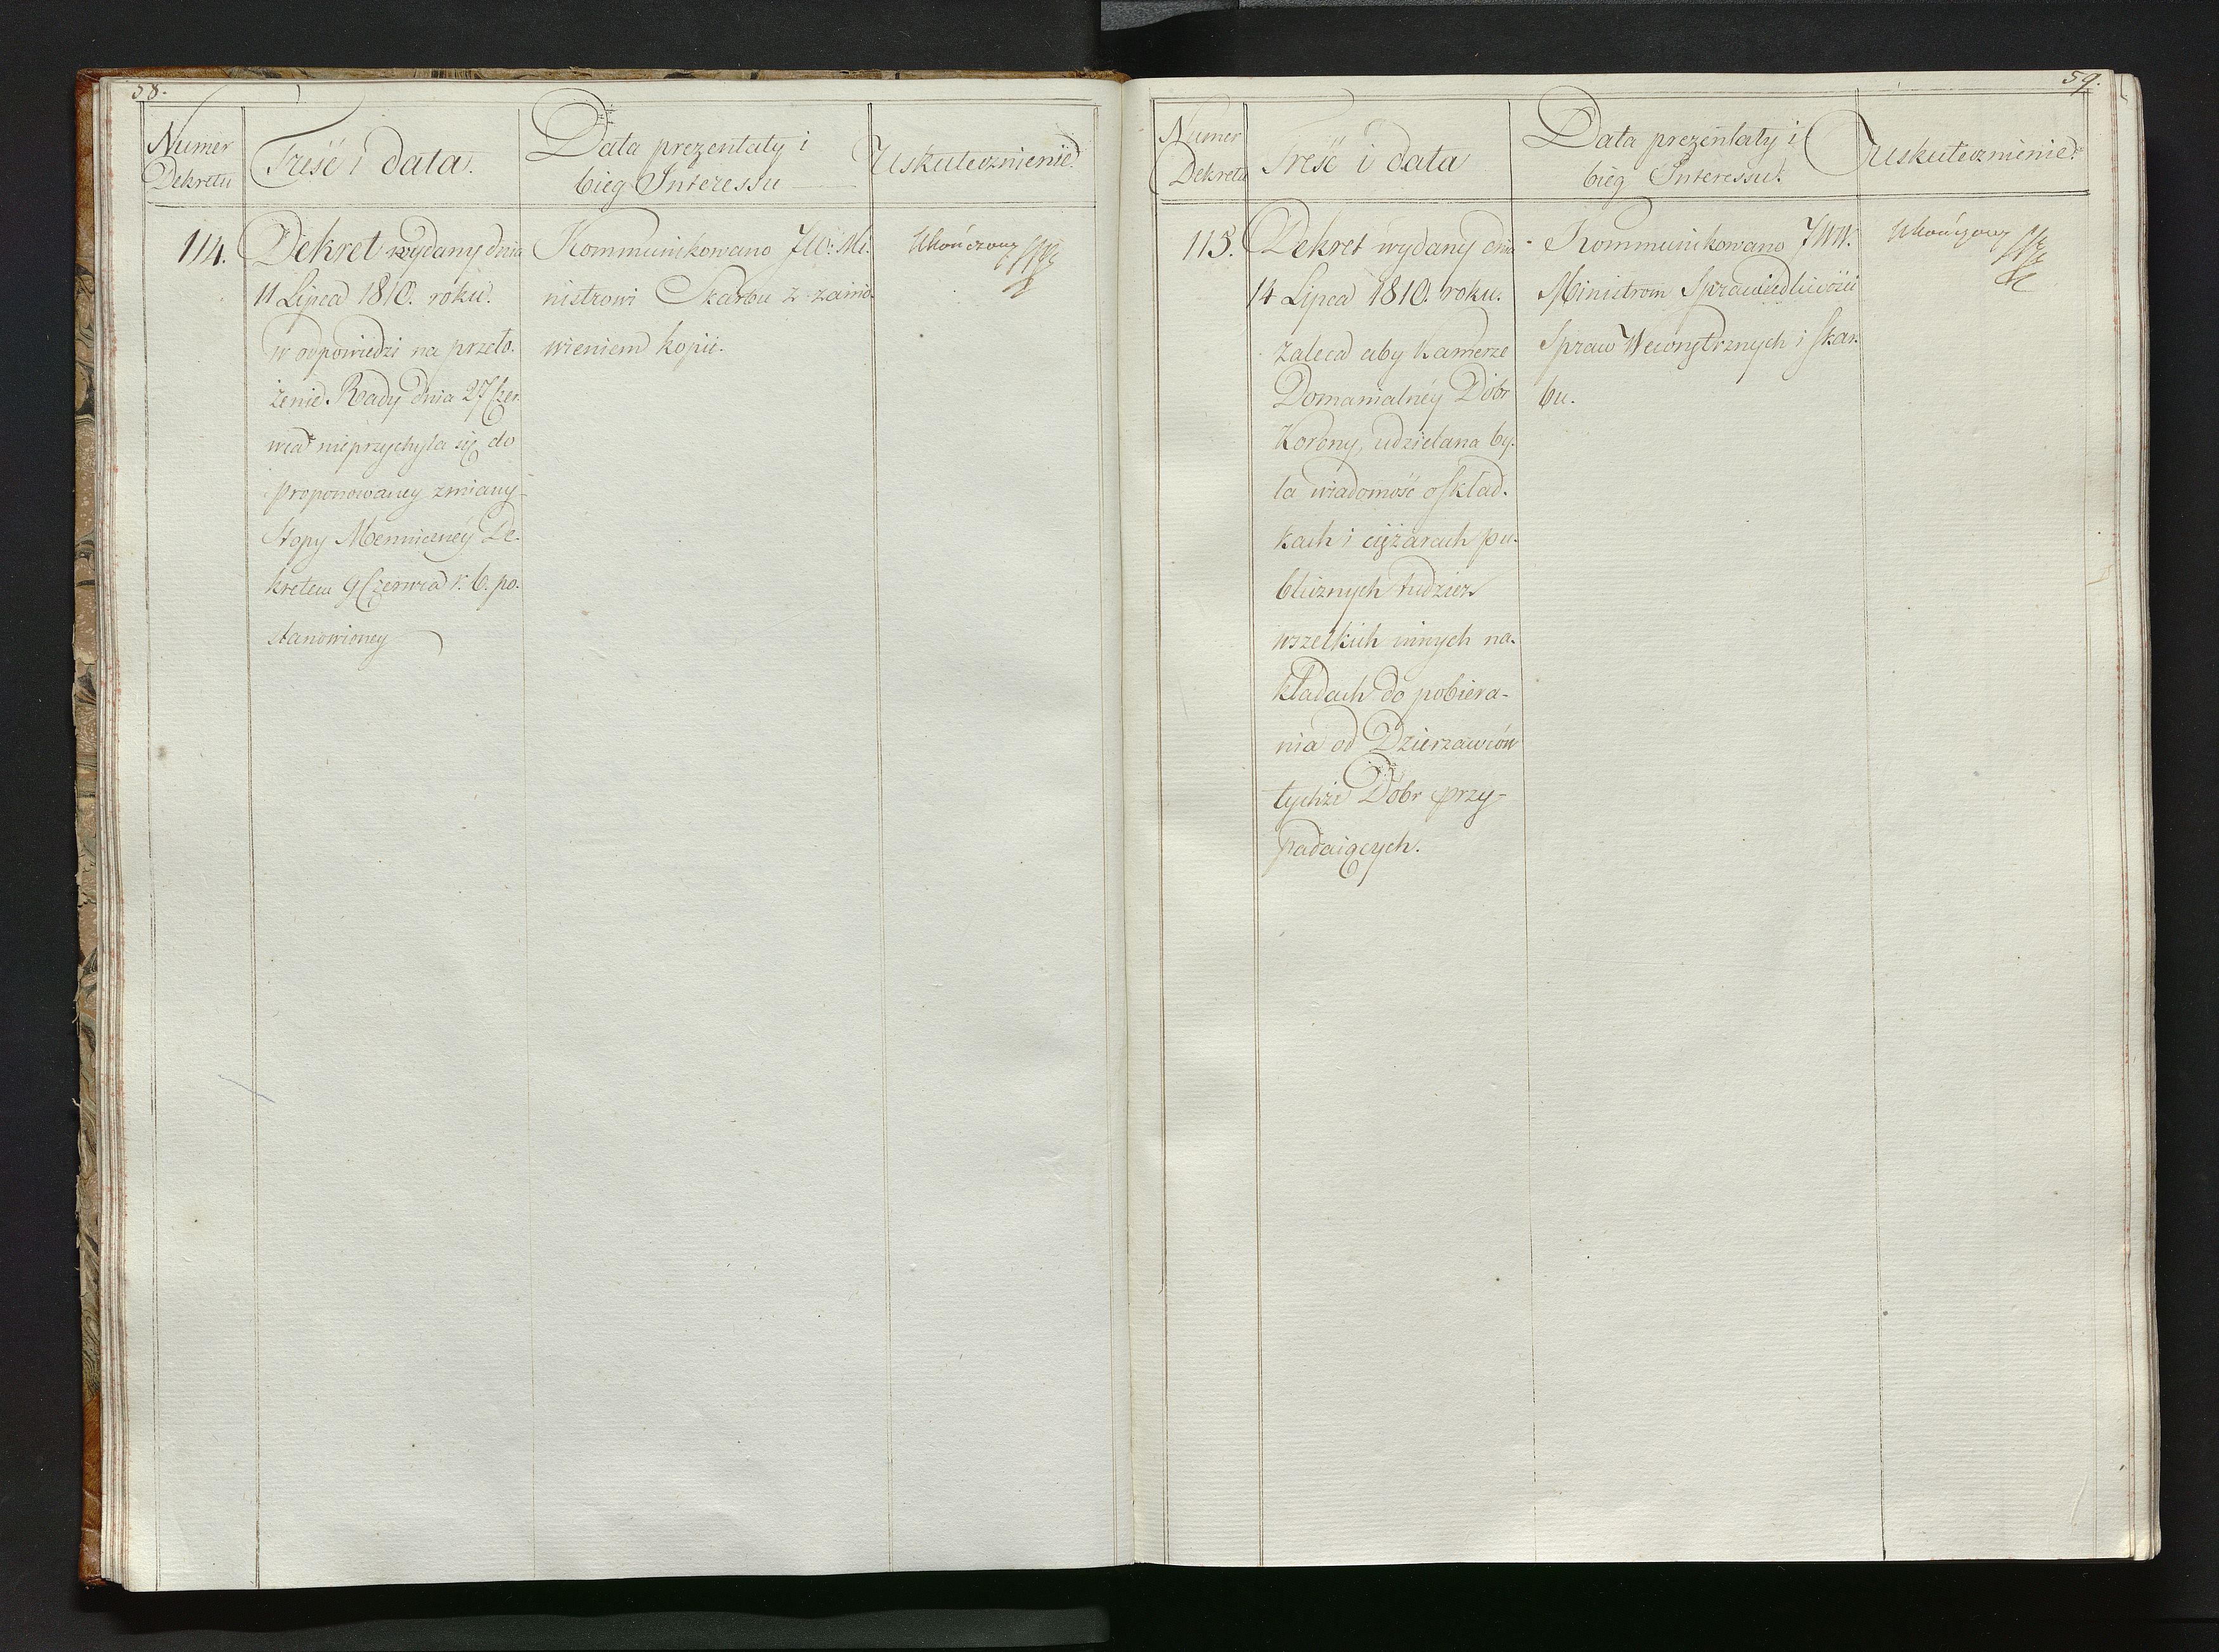 58.
Numer
Dekretu
Treść i data.
Data prezentaty i
bieg Interessu
Uskutecznienie
114.
Dekret wydany dnia
11 Lipca 1810. roku.
w odpowiedzi na przeło.
żenie Rady dnia 27 Czer.
wca nieprzychyla się do
proponowaney zmiany
Stopy Menniczney De.
kretem 9 Czerwca r. b. po.
stanowioney
Kommunikowano JW: Mi.
nistrowi Skarbu z zamó.
wieniem kopii.
Ukończony
59.
Numer
Dekretu
Treść i data
Data prezentaty i
bieg Interessu.
Uskutecznienie.
115.
Dekret wydany dnia
14 Lipca 1810. roku.
zaleca aby Kamerze
Domanialnéy Dóbr
Korony, udzielana by.
ła wiadomość o skład.
kach i ciężarach pu.
blicznych tudzież
wszelkich innych na.
kładach do pobiera-
nia od Dzierzawców
tychże Dóbr przy-
padaiących.
Kommunikowano JWW.
Ministrom Sprawiedliwości
Spraw Wewnętrznych i Skar.
bu.
Ukończony